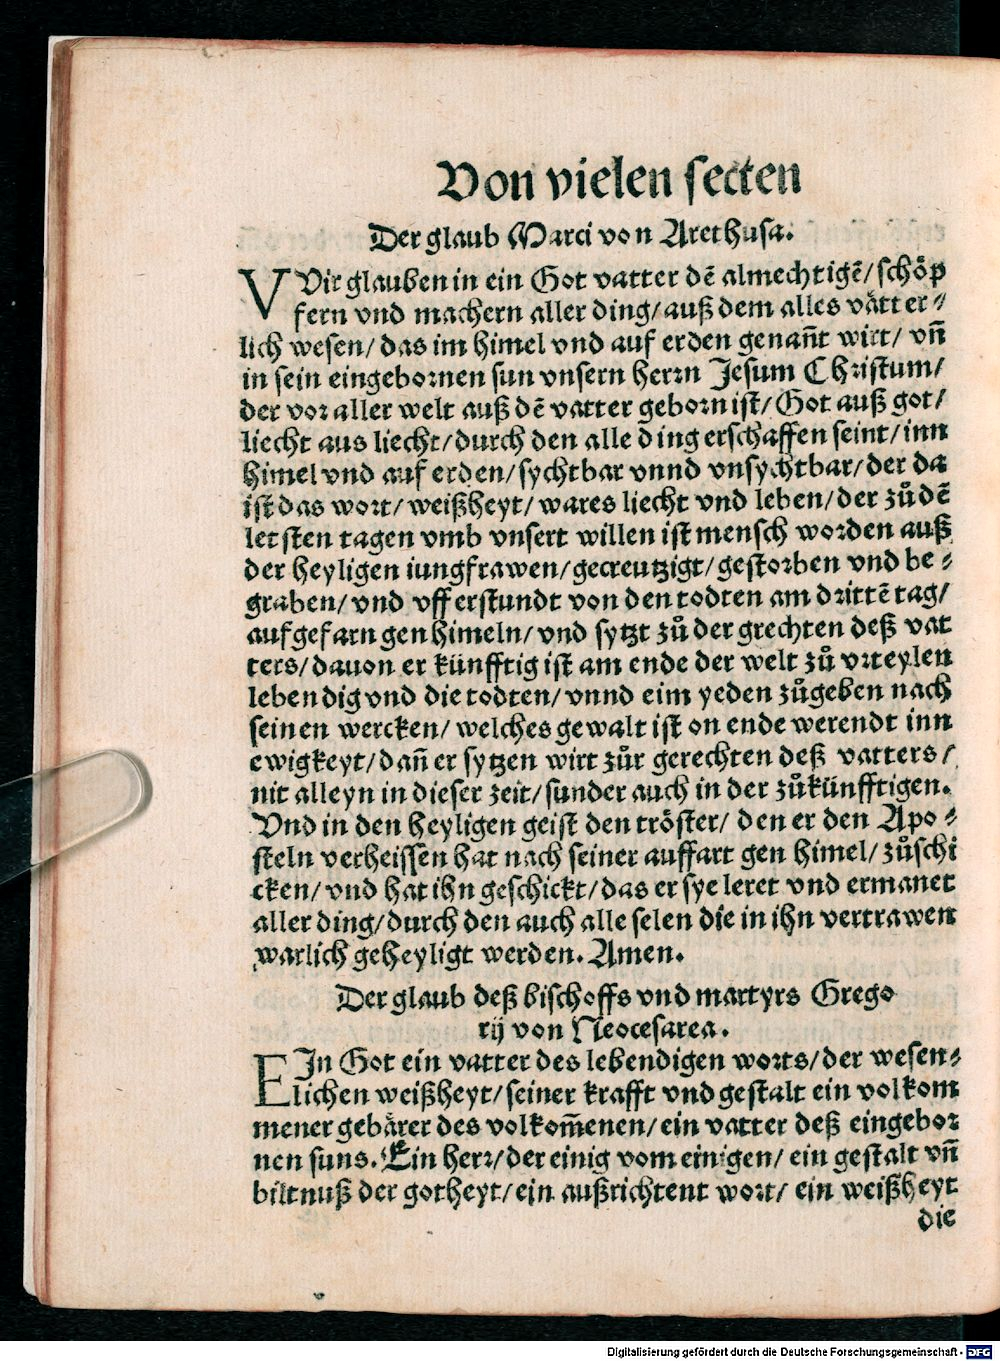 Von vielen secten
Der glaub Marci von Arethusa.
VVir glauben in ein Got vatter dē almechtigē/ schöp
fern vnd machern aller ding/ auß dem alles vätter⸗
lich wesen/ das im himel vnd auf erden genañt wirt/ vñ
in sein eingebornen sun vnsern herrn Jesum Christum/
der vor aller welt auß dē vatter geborn ist/ Got auß got/
liecht aus liecht/ durch den alle ding erschaffen seint/ inn
himel vnd auf erden/ sychtbar vnnd vnsychtbar/ der da
ist das wort/ weißheyt/ wares liecht vnd leben/ der zů dē
letsten tagen vmb vnsert willen ist mensch worden auß
der heyligen iungfrawen/ gecreutzigt/ gestorben vnd be⸗
graben/ vnd vff erstundt von den todten am drittē tag/
aufgefarn gen himeln/ vnd sytzt zů der grechten deß vat
ters/ dauon er künfftig ist am ende der welt zů vrteylen
lebendig vnd die todten/ vnnd eim yeden zůgeben nach
seinen wercken/ welches gewalt ist on ende werendt inn
ewigkeyt/ dañ er sytzen wirt zůr gerechten deß vatters/
nit alleyn in dieser zeit/ sunder auch in der zůkünfftigen.
Vnd in den heyligen geist den tröster/ den er den Apo⸗
steln verheissen hat nach seiner auffart gen himel/ zůschi
cken/ vnd hat ihn geschickt/ das er sye leret vnd ermanet
aller ding/ durch den auch alle selen die in ihn vertrawen
warlich geheyligt werden. Amen.
Der glaub deß bischoffs vnd martyrs Grego
rij von Neocesarea.
EIn Got ein vatter des lebendigen worts/ der wesen⸗
lichen weißheyt/ seiner krafft vnd gestalt ein volkom
mener gebärer des volkom̃enen/ ein vatter deß eingebor
nen suns. Ein herr/ der einig vom einigen/ ein gestalt vñ
biltnuß der gotheyt/ ein außrichtent wort/ ein weißheyt
die
Digitalisierung gefördert durch die Deutsche Forschungsgemeinschaft - DFG